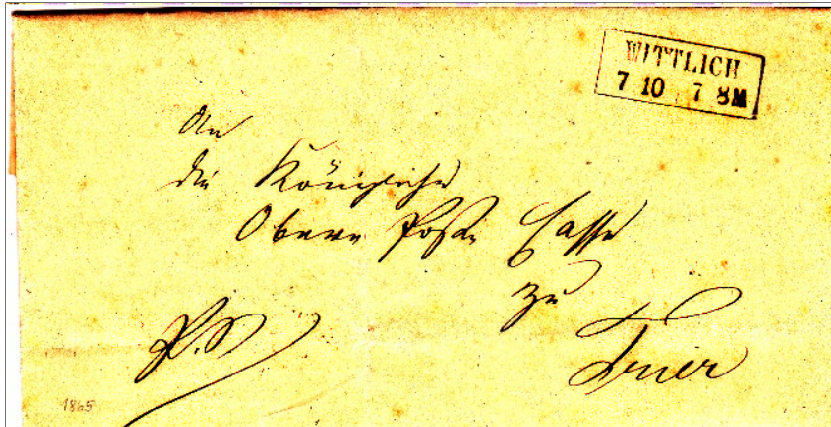 WITTLICH
7 10 7 8M
An
die Königliche
Obere Post Casse
zu
Trier
P.S
1865